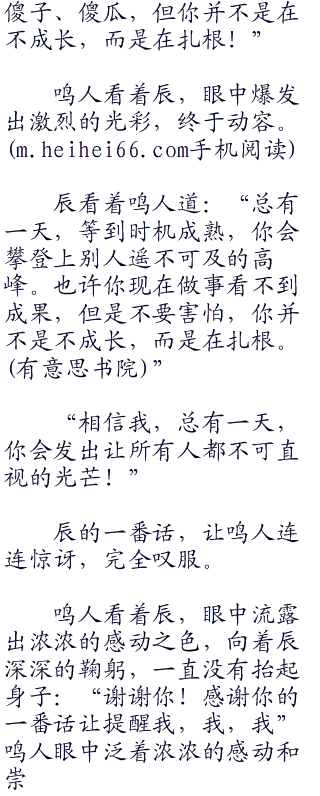 傻子、傻瓜，但你并不是在
不成长，而是在扎根！”
鸣人看着辰，眼中爆发
出激烈的光彩，终于动容。
(m.heihei66.com手机阅读)
辰看着鸣人道：“总有
一天，等到时机成熟，你会
攀登上别人遥不可及的高
峰。也许你现在做事看不到
成果，但是不要害怕，你并
不是不成长，而是在扎根。
(有意思书院)”
“相信我，总有一天，
你会发出让所有人都不可直
视的光芒！”
辰的一番话，让鸣人连
连惊讶，完全叹服。
鸣人看着辰，眼中流露
出浓浓的感动之色，向着辰
深深的鞠躬，一直没有抬起
身子：“谢谢你！感谢你的
一番话让提醒我，我，我”
鸣人眼中泛着浓浓的感动和
崇